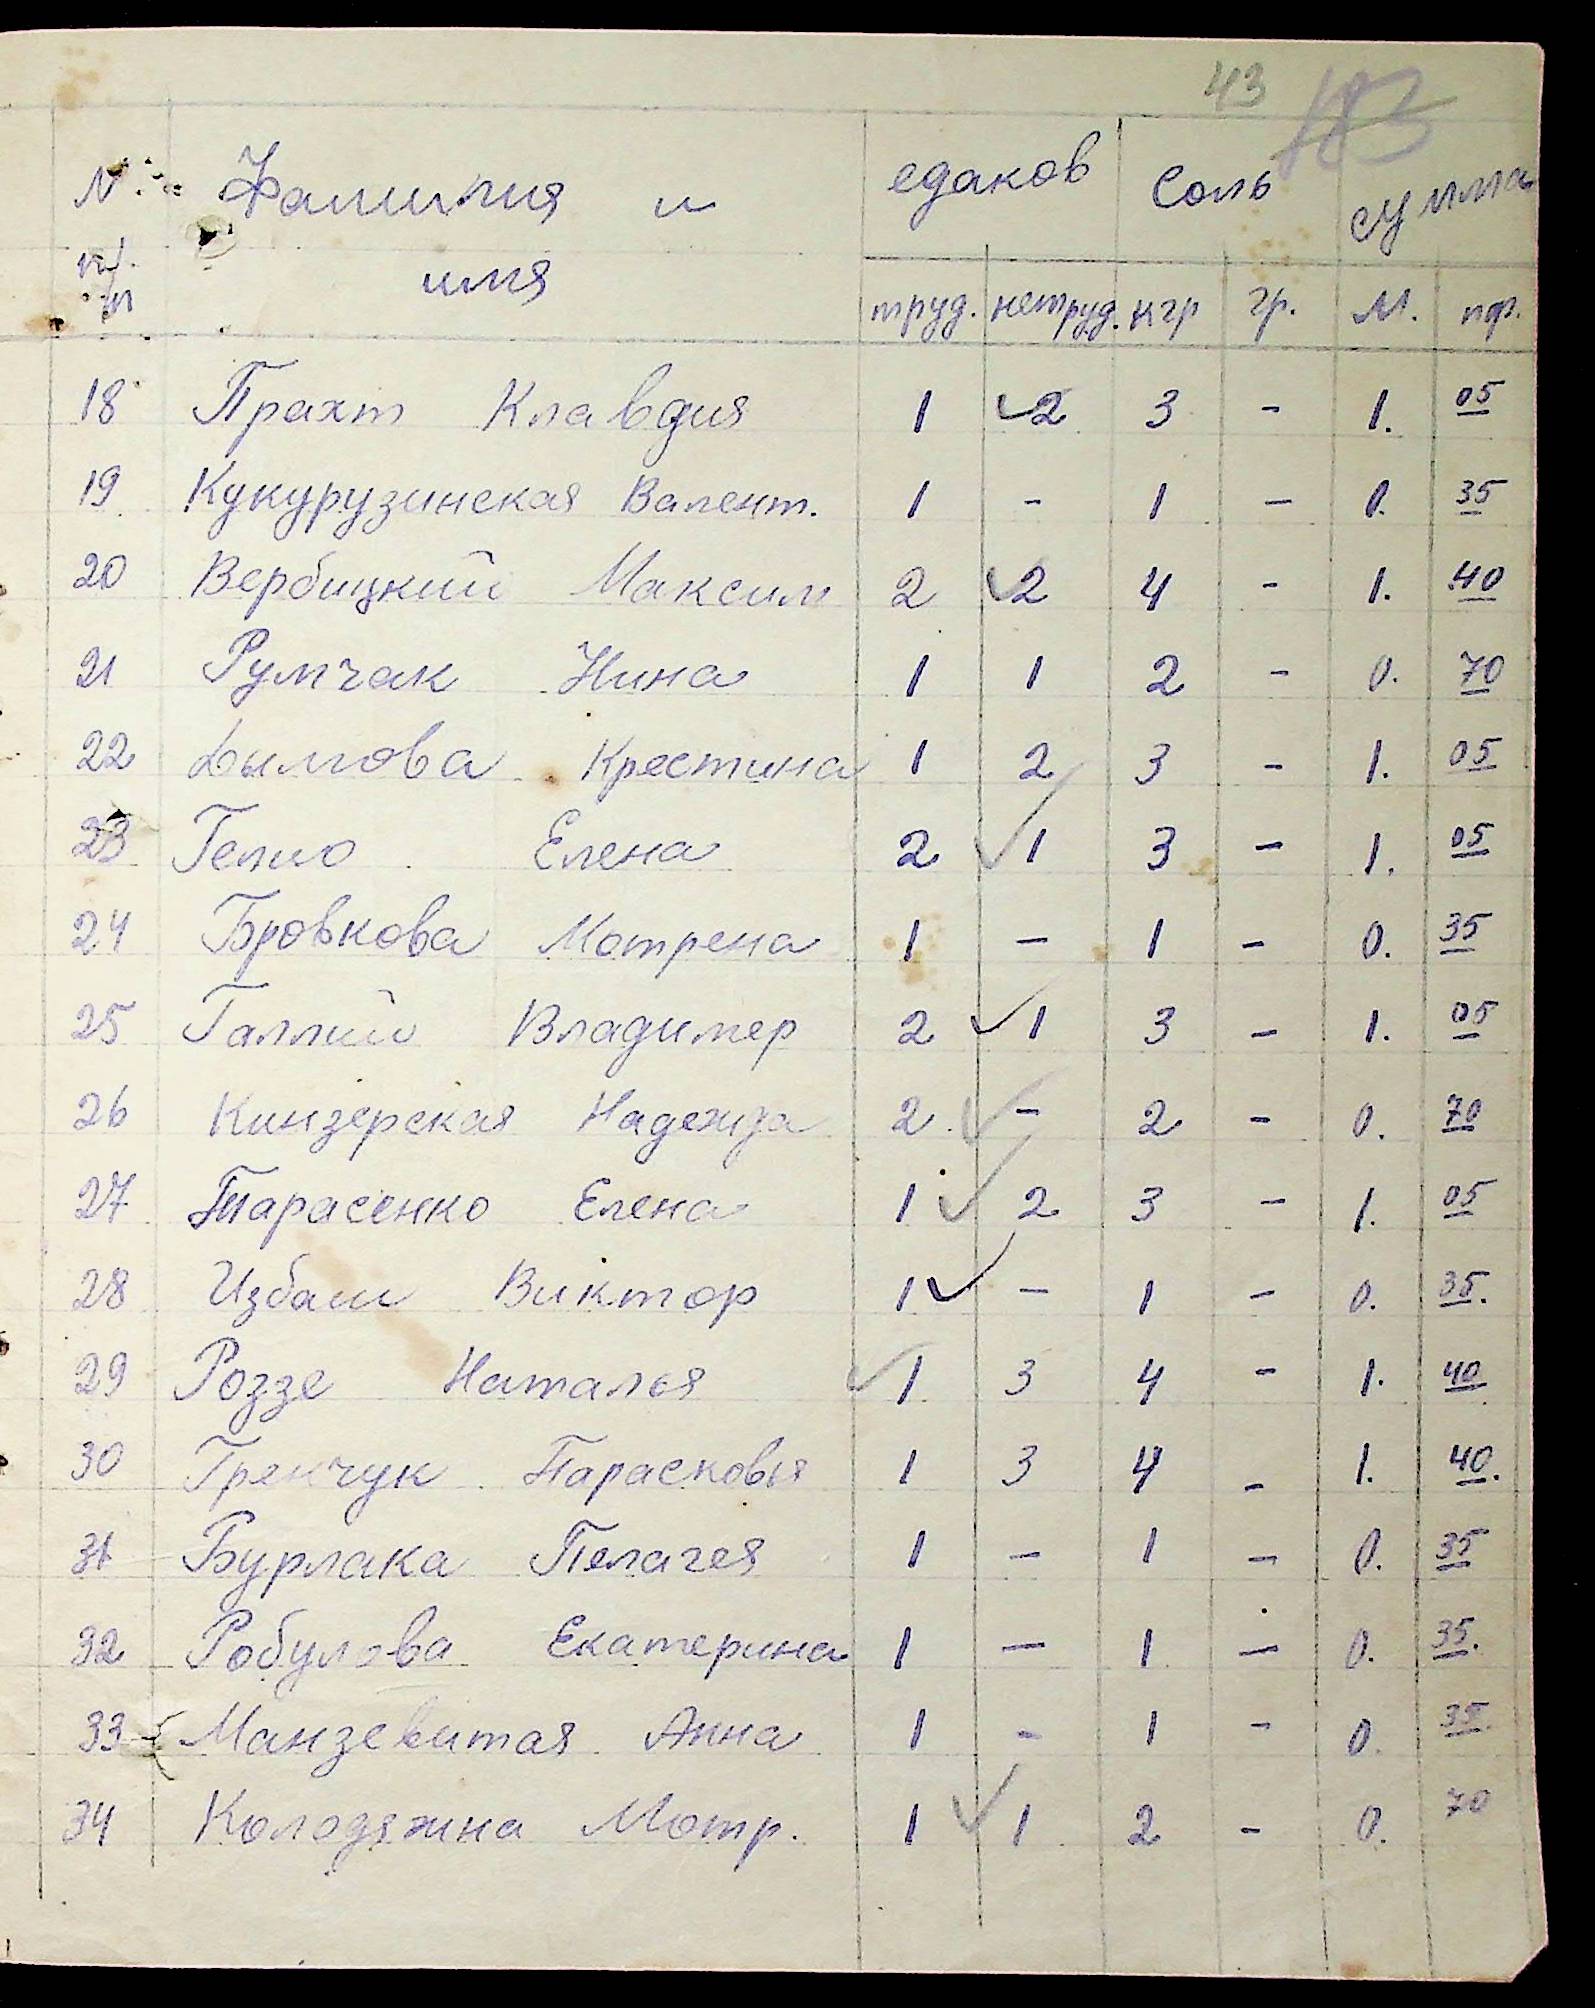 43 183
N Фамилия и едаков Соль сумма
п/п имя труд. нетруд. кгр гр. М. пф.
18 Прахт Клавдия 1 2 3 - 1. 05
19 Кукурузинская Валент. 1 - 1 - 0. 35
20 Вербицкий Максим 2 2 4 - 1. 40
21 Румчак Нина 1 1 2 - 0. 70
22 Дымова Крестина 1 2 3 - 1. 05
23 Елена 2 1 3 - 1. 05
24 Бровкова Мотрена 1 - 1 - 0. 35
25 Галлий Владимер 2 1 3 - 1. 05
26 Кинзерская Надежда 2 - 2 - 0. 70
27 Тарасенко Елена 1 2 3 - 1. 05
28 Избаш Виктор 1 - 1 - 0. 35.
29 Роззе Наталья 1 3 4 - 1. 40
30 Гренчук Парасковья 1 3 4 - 1. 40.
31 Бурлака Пелагея 1 - 1 - 0. 35
32 Робулова Екатерина 1 - 1 - 0. 35.
33 Манзевитая Анна 1 - 1 - 0. 35
34 Колодяжна Мотр. 1 1 2 - 0. 70